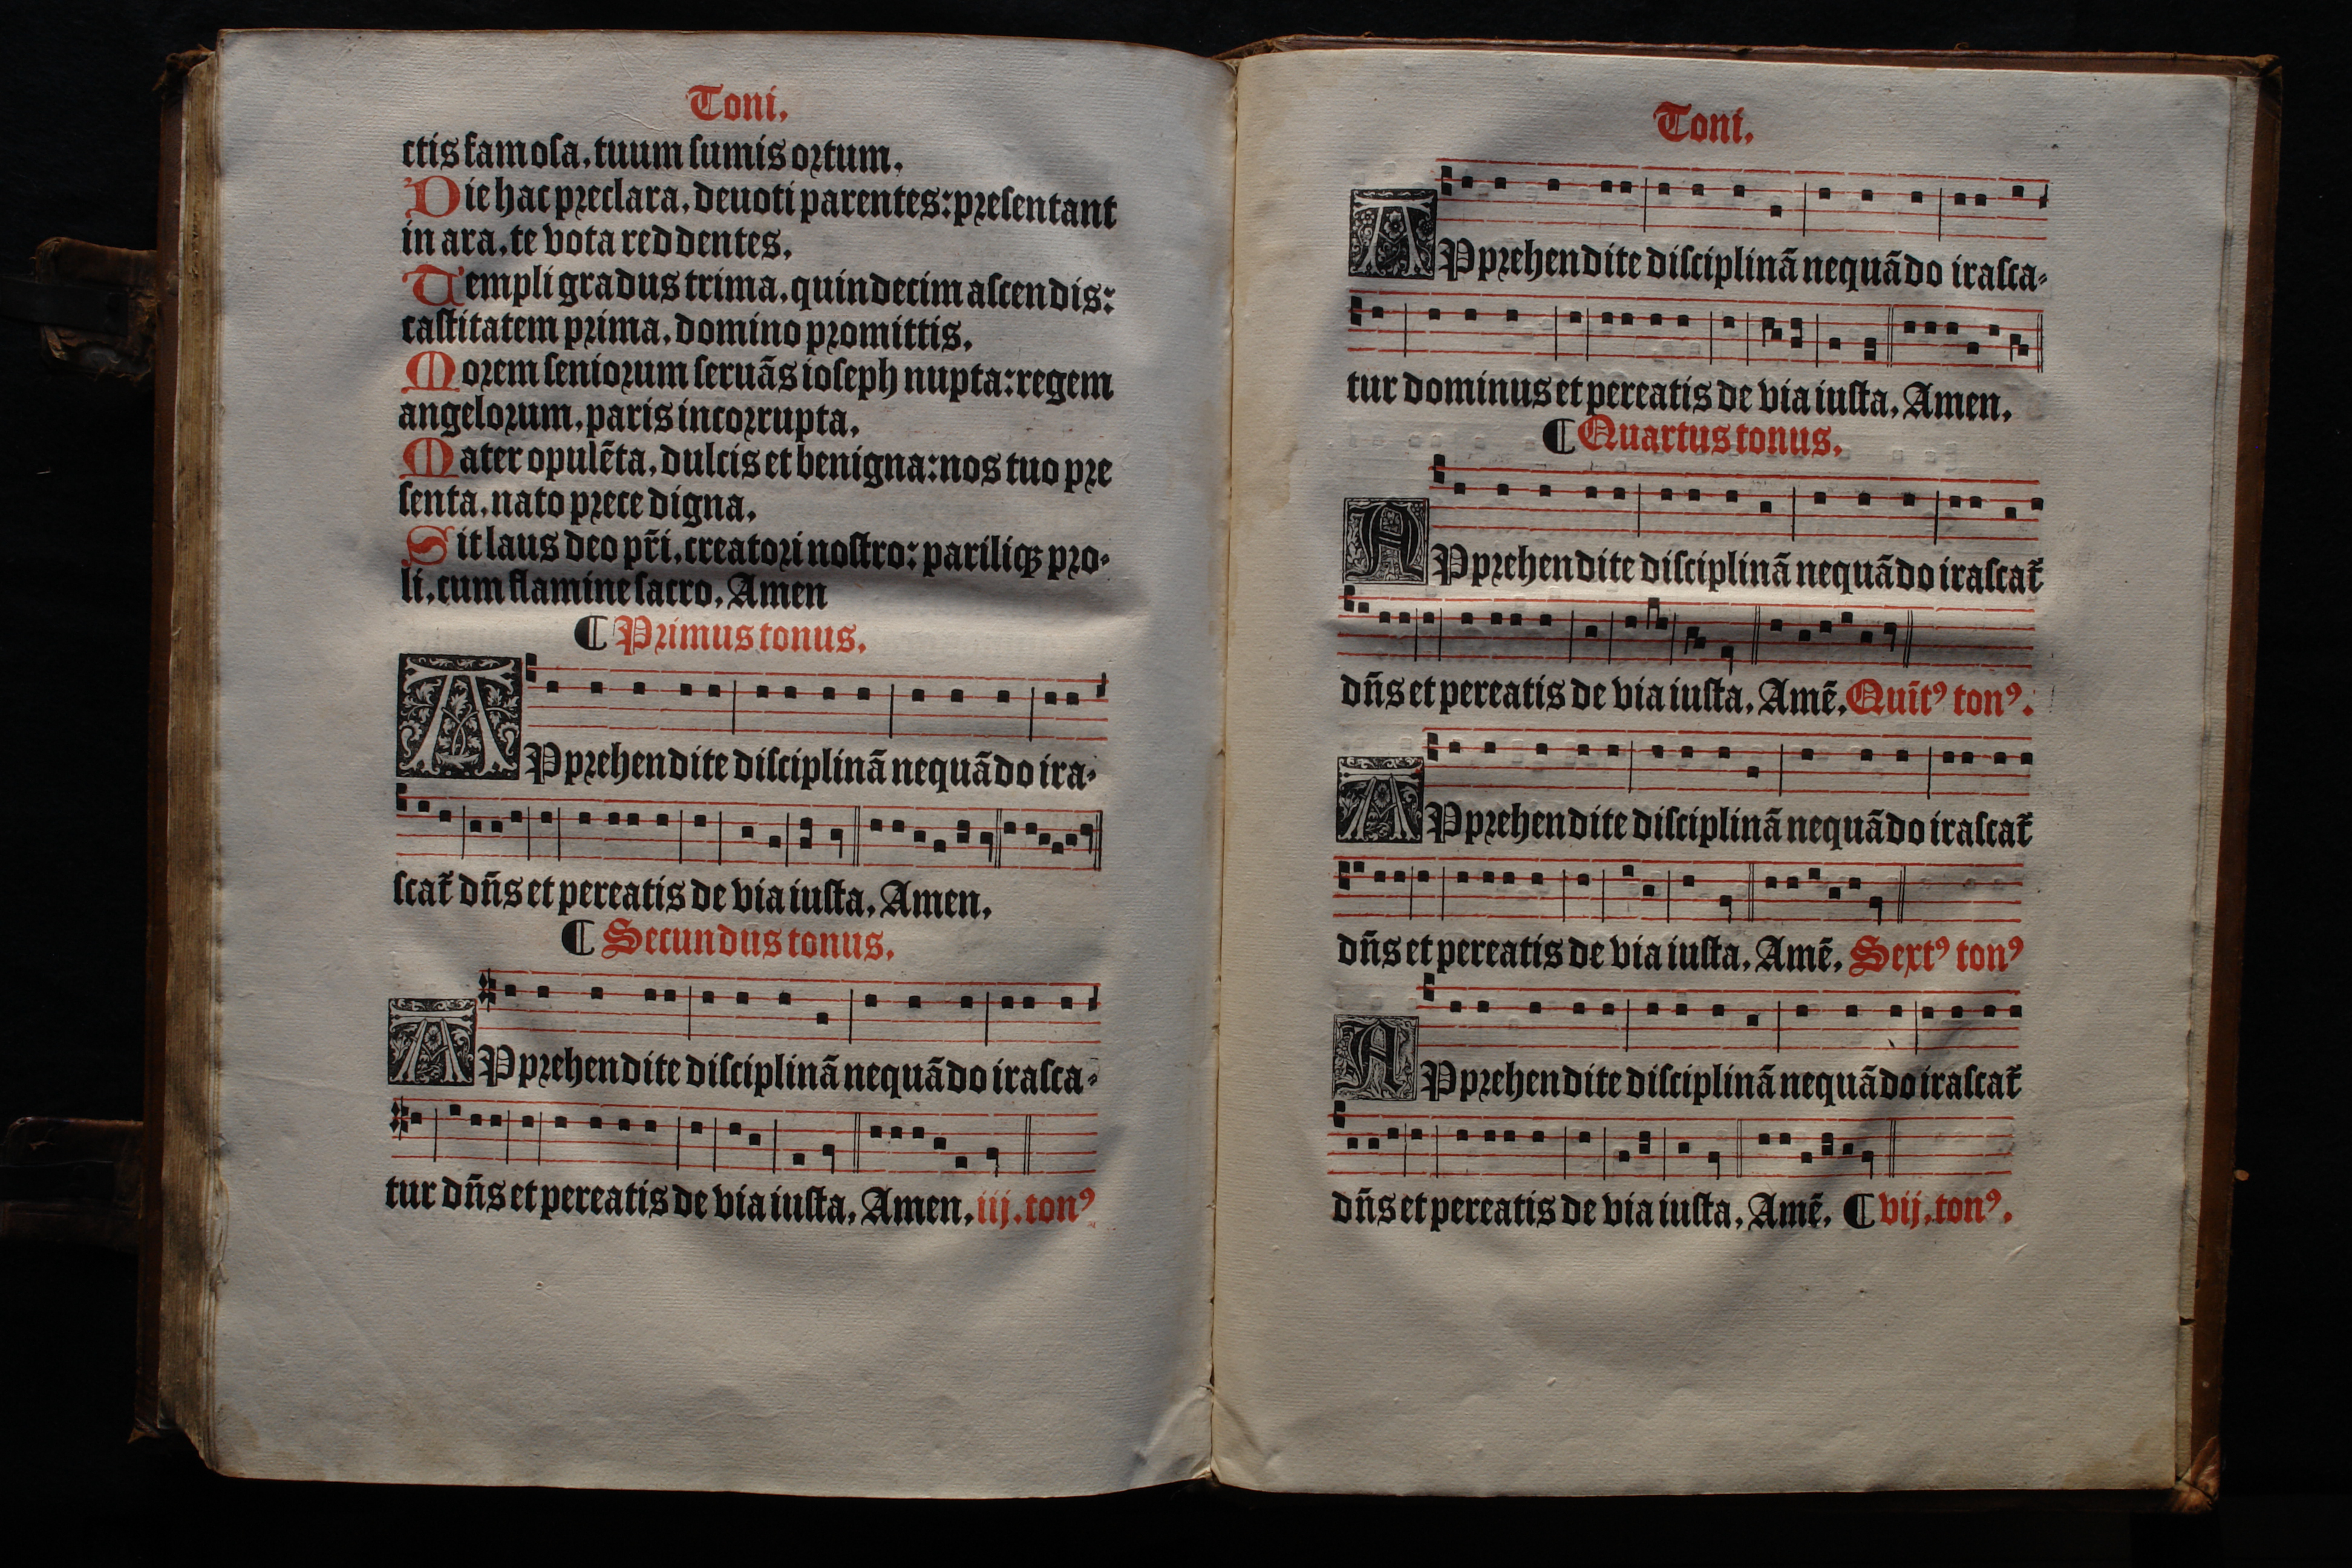 Toni.
ctis famosa, tuum sumis ortum.
Die hac preclara, deuoti parentes: presentant
in ara, te vota reddentes.
Templi gradus trima, quindecim ascendis:
castitatem prima, domino promittis.
Morem seniorum seruãs ioseph nupta: regem
angelorum, paris incorrupta.
Mater opulẽta, dulcis et benigna: nos tuo pre
senta, nato prece digna.
Sit laus deo pr̃i, creatori nostro: pariliqꝫ pro-
li, cum flamine sacro. Amen
¶ Primus tonus.
APprehendite disciplinã nequãdo ira-
scat̃ dñs et pereatis de via iusta. Amen.
¶ Secundus tonus.
APprehendite disciplinã nequãdo irasca-
tur dñs et pereatis de via iusta. Amen. iij. tonꝰ
Toni.
APprehendite disciplinã nequãdo irasca-
tur dominus et pereatis de via iusta. Amen.
¶ Quartus tonus.
APprehendite disciplinã nequãdo irascat̃
dñs et pereatis de via iusta. Amẽ. Quĩtꝰ tonꝰ.
APprehendite disciplinã nequãdo irascat̃
dñs et pereatis de via iusta. Amẽ. Sextꝰ tonꝰ
APprehendite disciplinã nequãdo irascat̃
dñs et pereatis de via iusta. Amẽ. ¶ vij. tonꝰ.